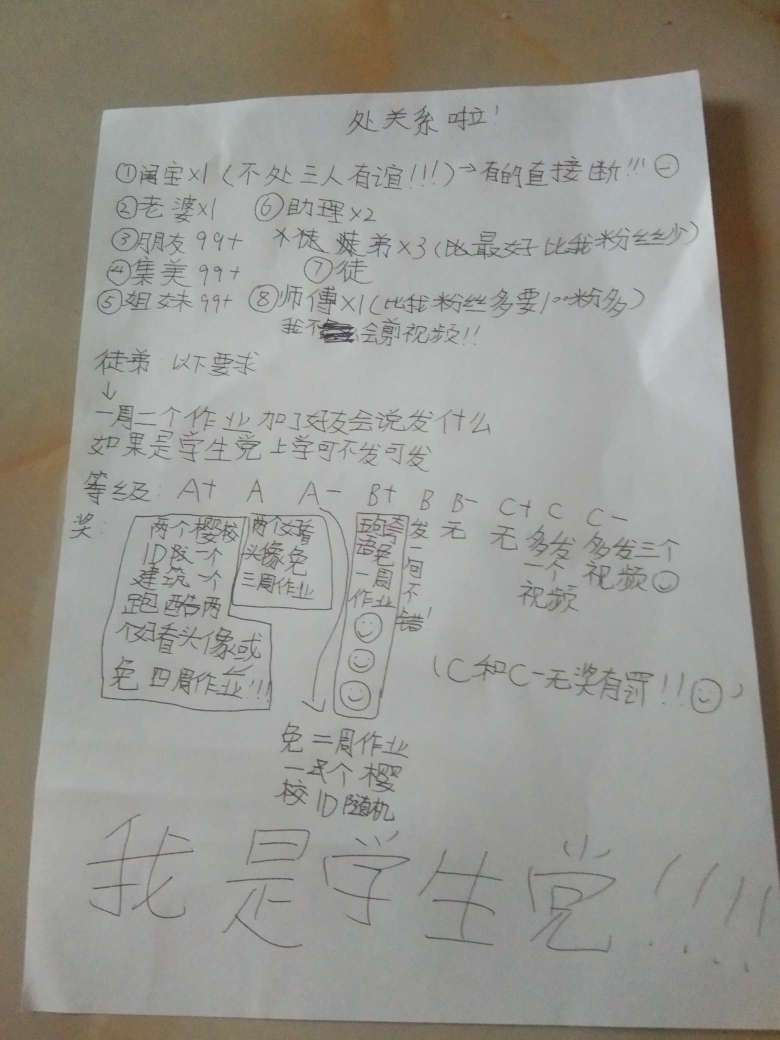 处关系啦!
①闺宝x1(不处三人有谊!!!)→有的直接断!!!
②老婆x1 ⑥助理x2
③朋友99+ 徒弟x3(比最好比我粉丝少)
④集美99+ ⑦徒
⑤姐妹99+ ⑧师傅x1(比我粉丝多要100粉多)
我不会剪视频!!
徒弟 以下要求
↓
一周二个作业 加了好友会说发什么
如果是学生党上学可不发可发
等级: A+ A A- B+ B B- C+ C C-
奖:
两个樱校
ID版一个
建筑一个
跑酷两
个好看头像或
免四周作业!!!
两个好看
头像免
三周作业
免二周作业
一个樱
校ID随机
五句夸
语免
一周
作业
发一句不错!
无
无
多发
一个
视频
多发三个
视频
(C和C-无奖有罚!!)
我是学生党!!!!